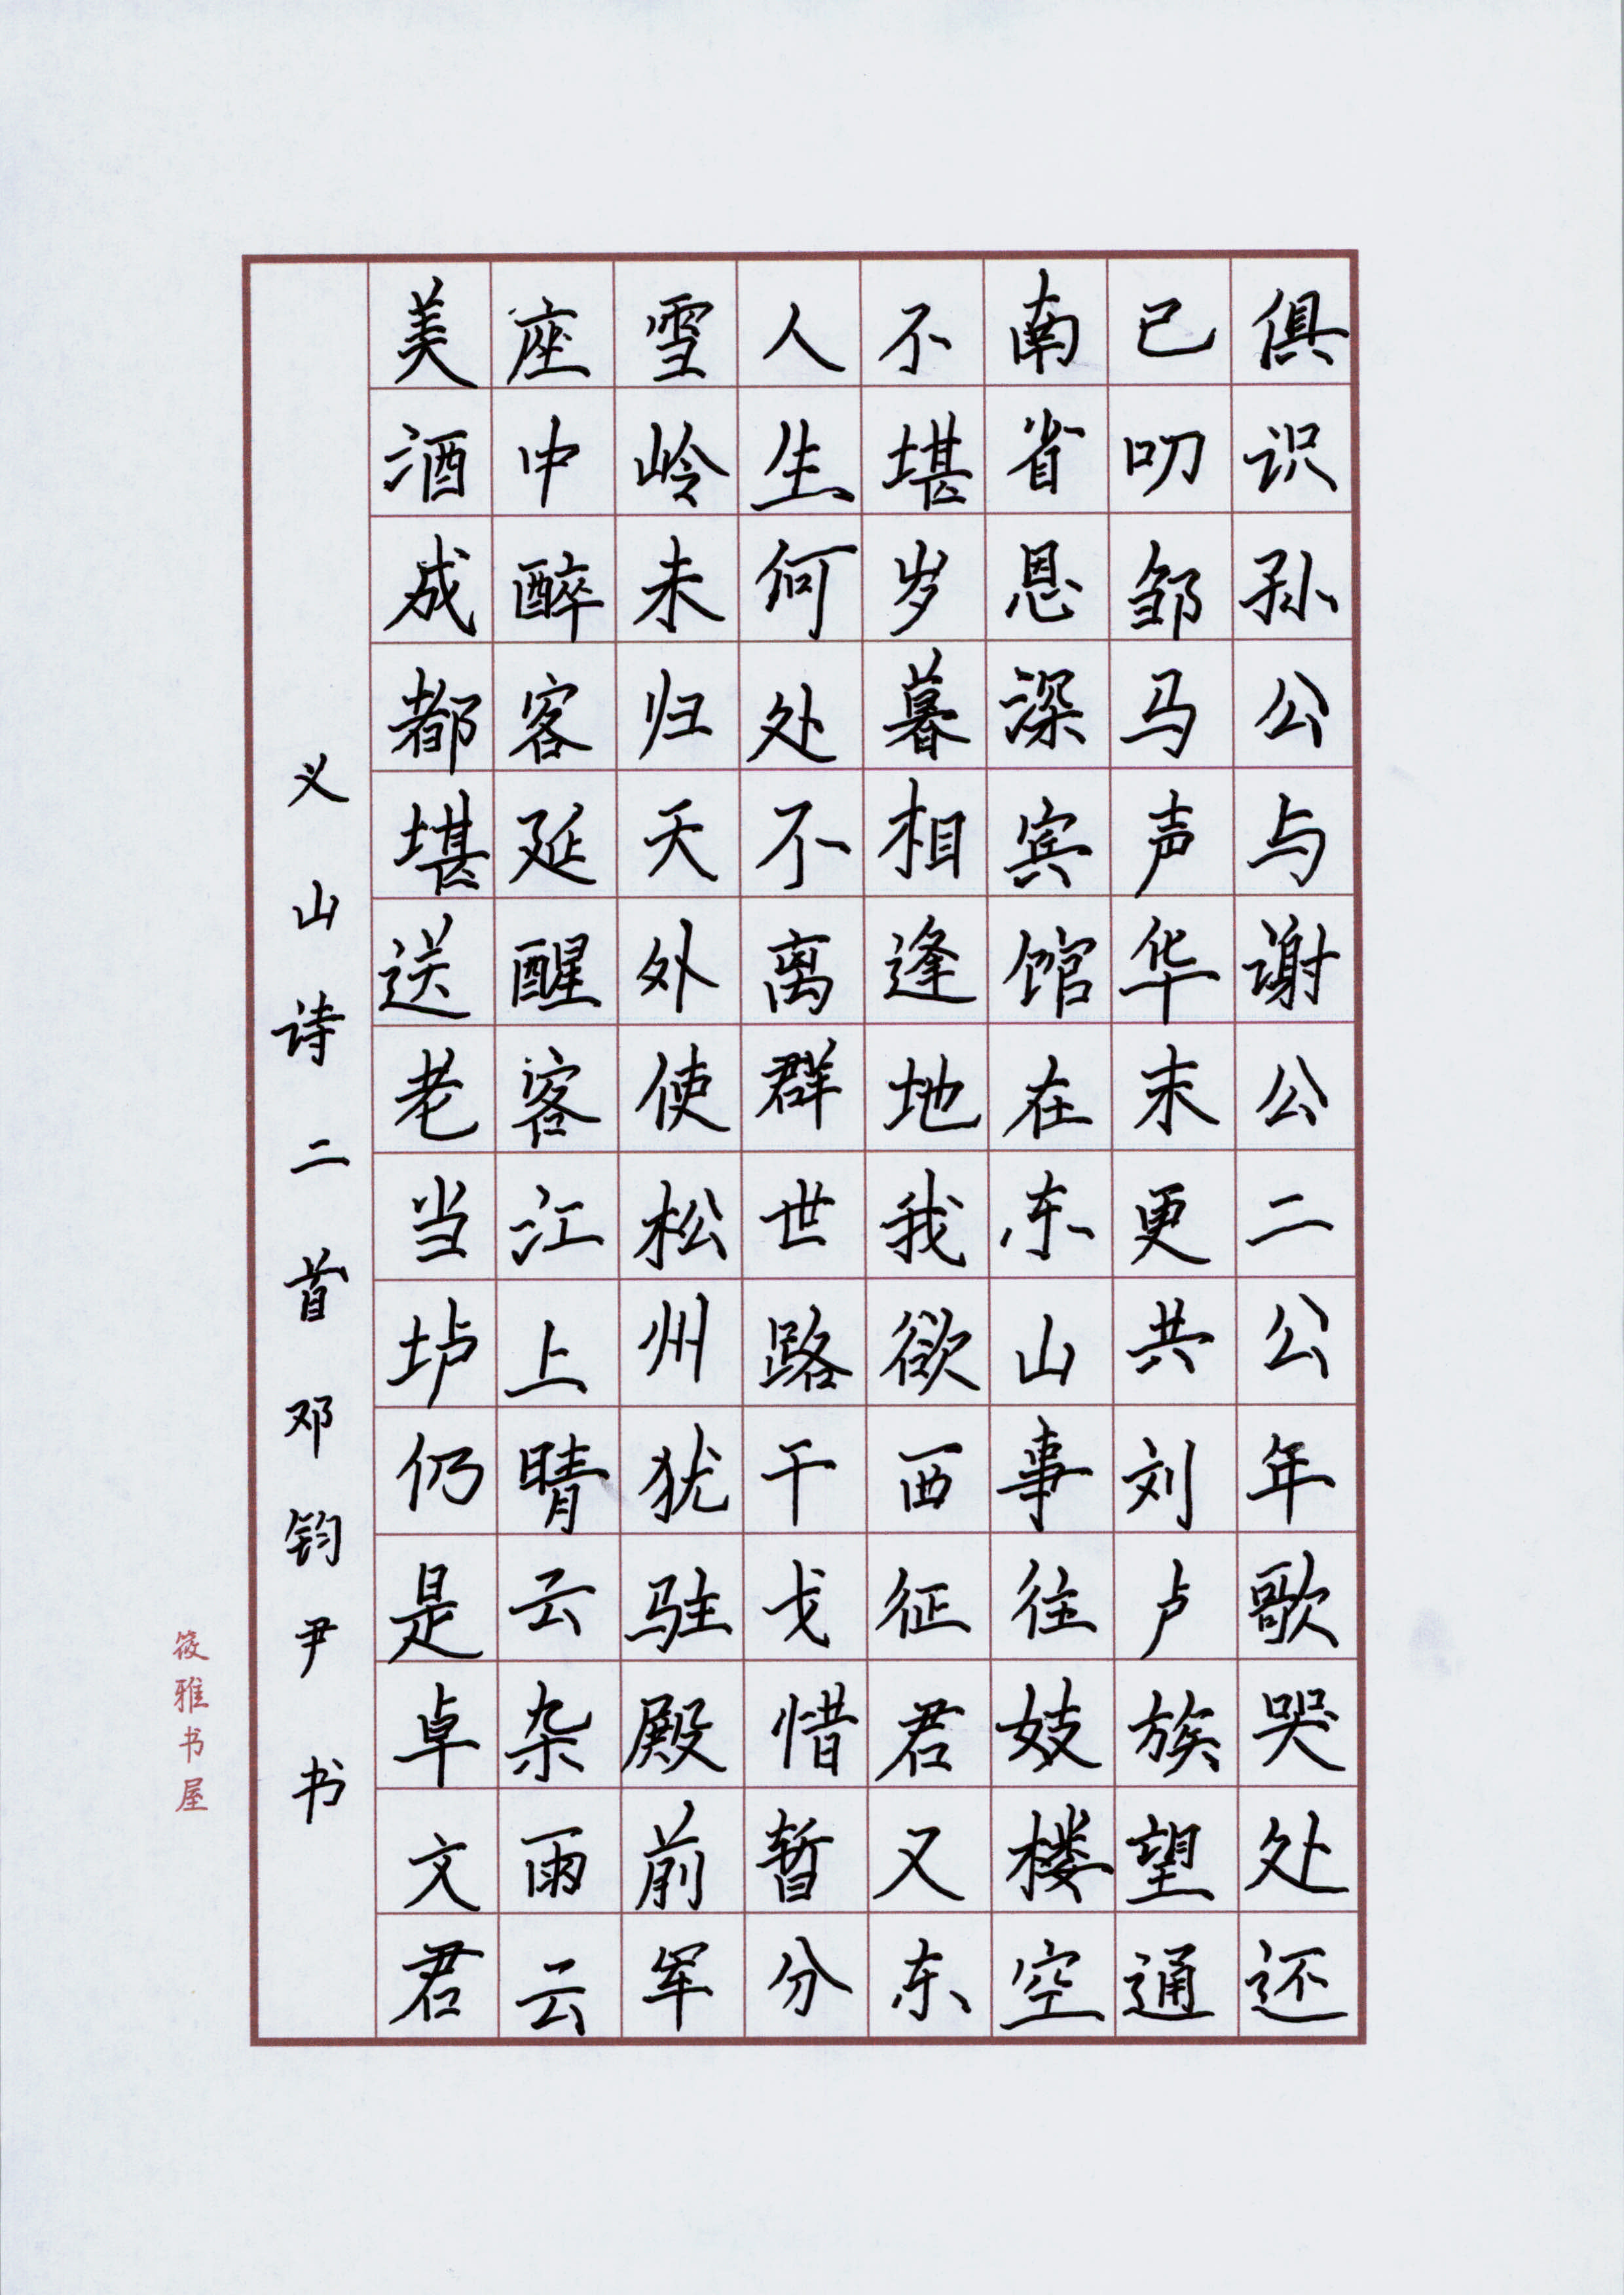 俱识孙公与谢公二公年歌哭处还
已叨邹马声华末更共刘卢族望通
南省恩深宾馆在东山事往妓楼空
不堪岁暮相逢地我欲西征君又东
人生何处不离群世路干戈惜暂分
雪岭未归天外使松州犹驻殿前军
座中醉客延醒客江上晴云杂雨云
美酒成都堪送老当垆仍是卓文君
义山诗二首邓钧尹书
筱雅书屋